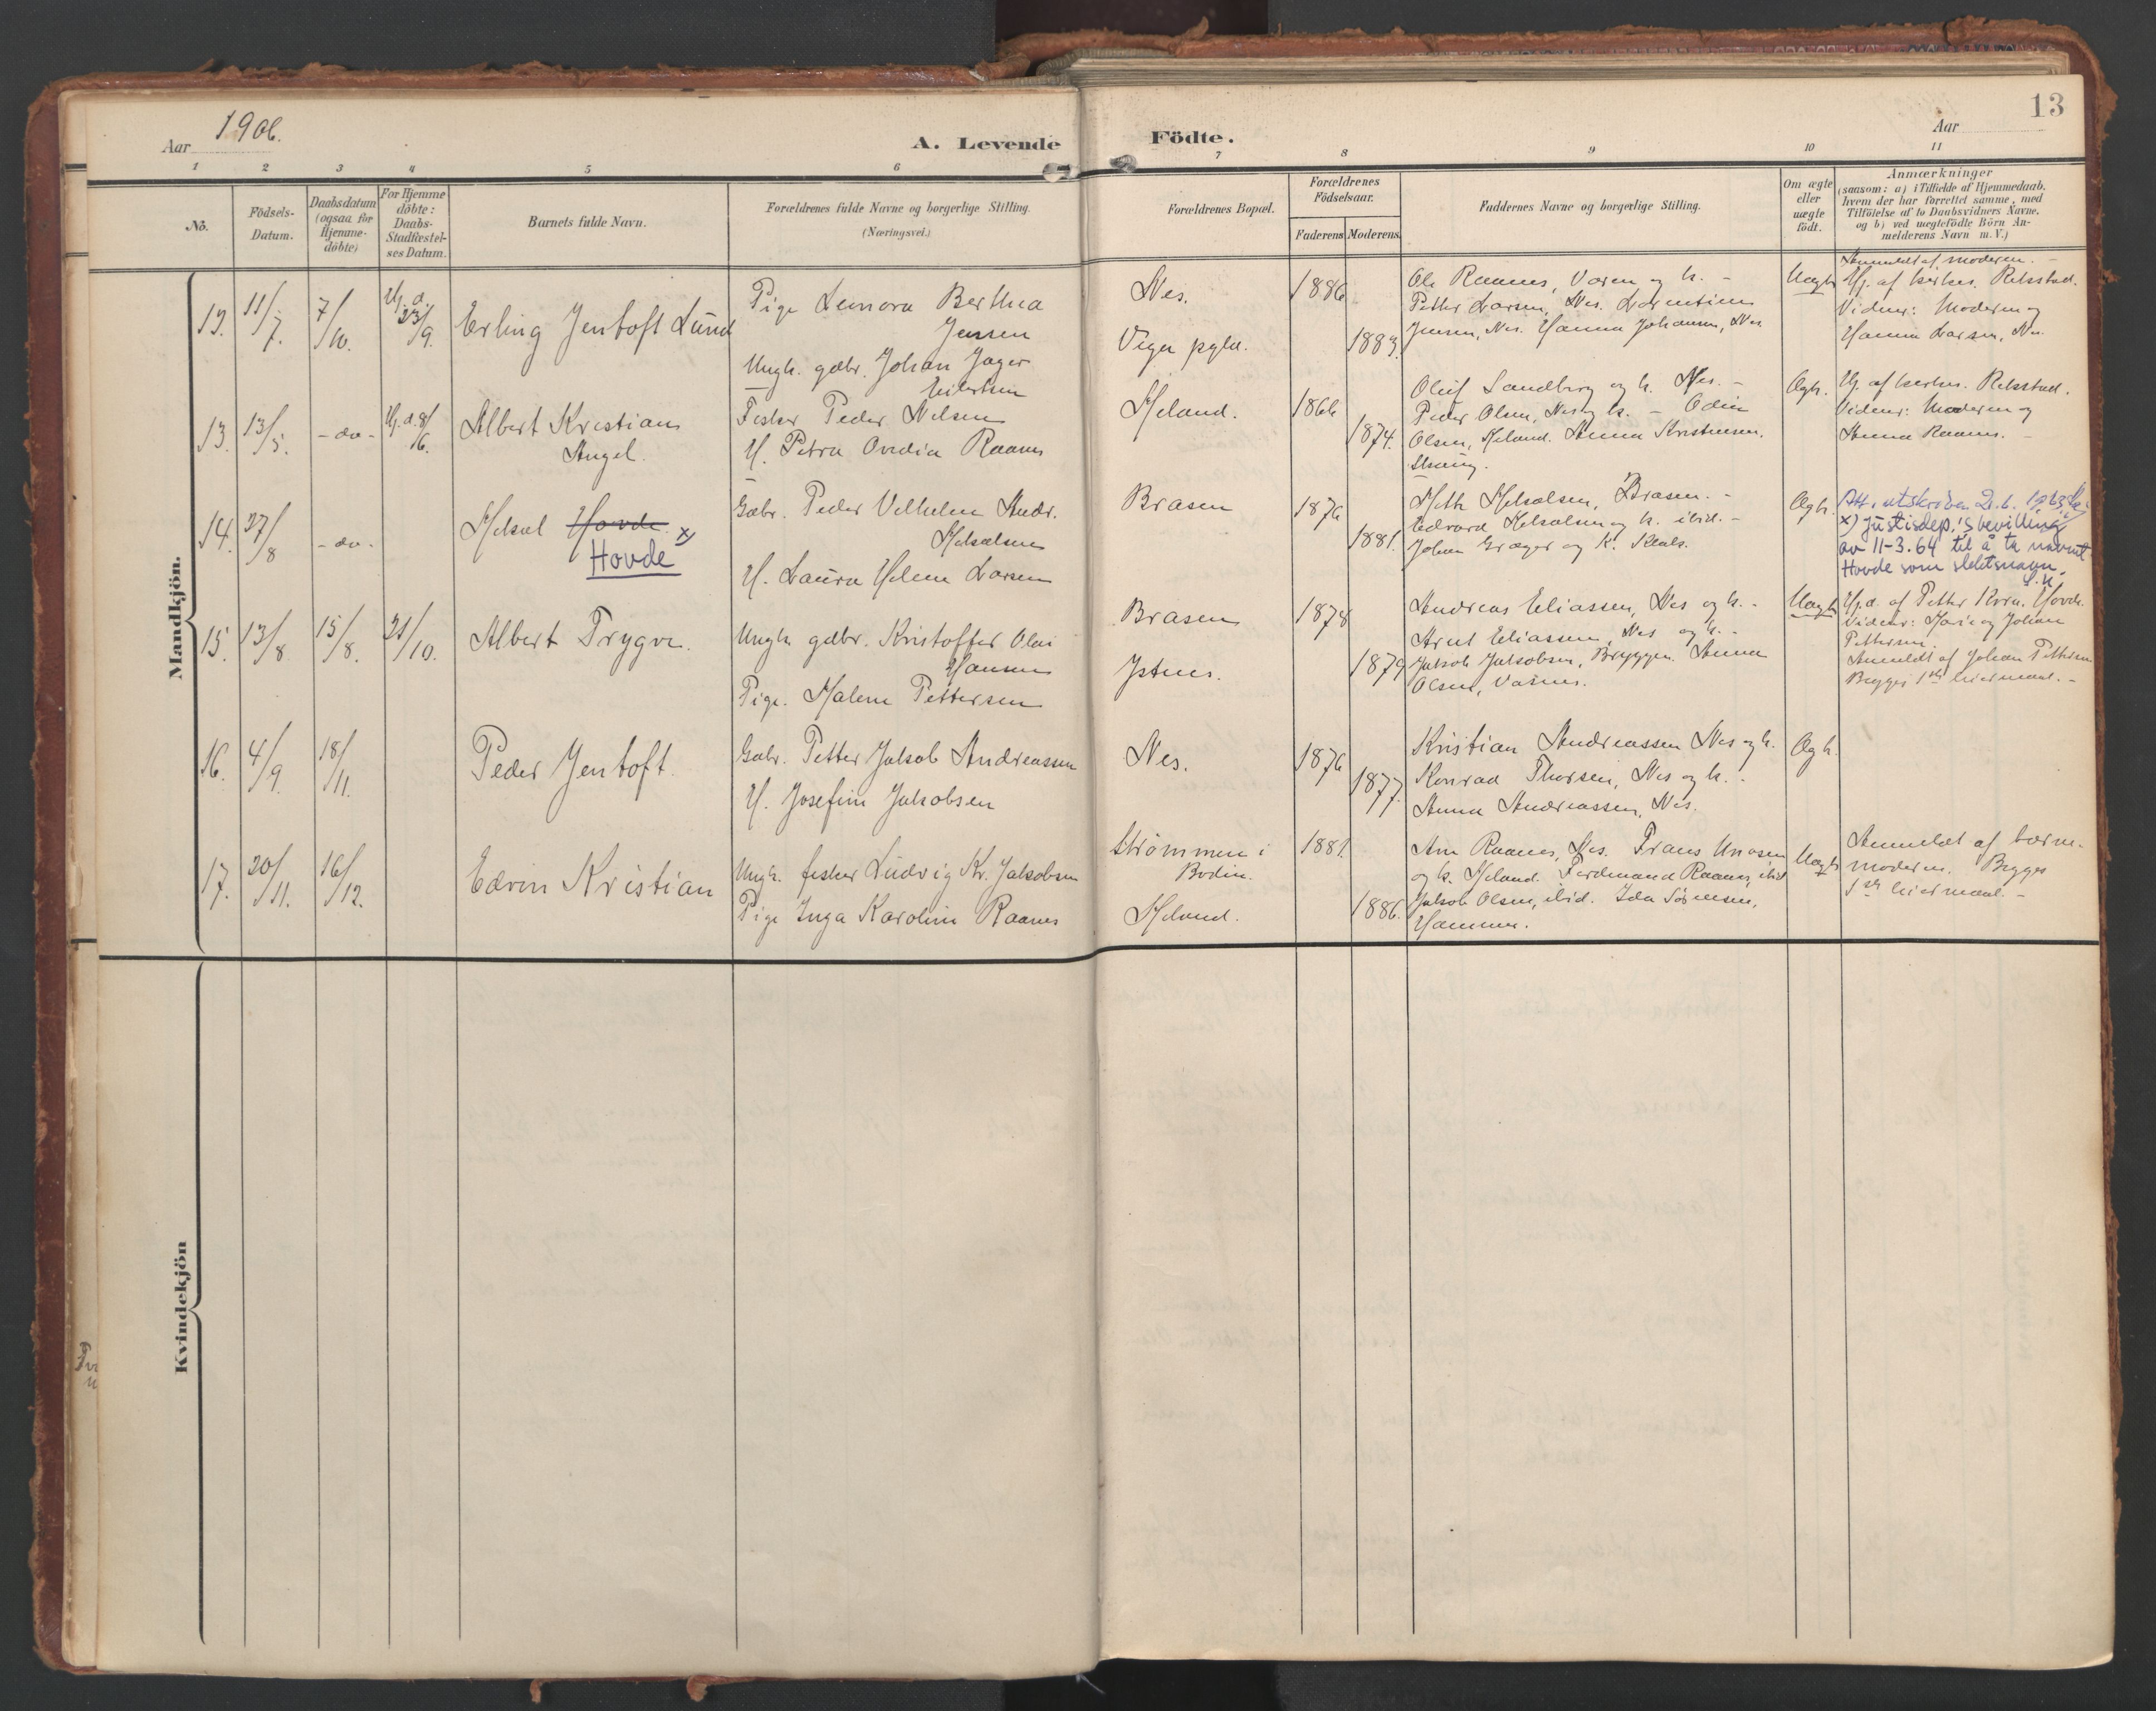 13
Aar 1906.
A. Levende Födte.
Aar
1 2 3 4 5 6 7 8 9 10 11
No.
Födsels-
Datum.
Daabsdatum
(ogsaa for
Hjemme-
döbte)
For Hjemme
döbte:
Daabs-
Stadfæstel-
ses Datum.
Barnets fulde Navn.
Forældrenes fulde Navne og borgerlige Stilling.
(Næringsvei.)
Forældrenes Bopæl.
Forældrenes
Födselsaar.
Faderens Moderens
Faddernes Navne og borgerlige Stilling.
Om ægte
eller
uægte
födt.
Anmærkninger
(saasom: a) i Tilfælde af Hjemmedaab,
hvem der har forrettet samme, med
Tilföielse af to Daabsvidners Navne,
og b) ved uægtefödte Börn An-
melderens Navn m. V.)
Mandkjön.
11/7. 7/10. Hj. d. 23/9.
Erling Jentoft Lund
Pige Leonora Berthea
Jensen
Ungk. gdbr. Johan Jager
Eilertsen
Nes.
1886
1883.
Ole Raanes, Voren og k. -
Petter Larsen, Nes. Lorentine
Jensen, Nes. Hanna Johansen, Nes.
Uægte
Anmeldt af moderen. -
Vidner: Moderen og
Hanna Larsen, Nes.
13. 13/5. - do - Hj. d. 8/6.
Albert Kristian
Angel.
Fisker Peder Nilsen
H. Petra Ovedia Raanes
Hjeland.
1866
1874.
Oluf Sandberg og k. Nes. -
Peder Olsen, Nes og k. - Odin
Olsen, Hjeland. Anna Kristensen,
Ægte.
Vidner: Moderen og
Anna Raanes. -
14. 27/8 - do -
Hovde x)
Hovde
Gdbr. Peder Vilhelm Andr.
H. Laura Helene Larsen
Brasen
1876
1881.
Brasen. -
Edvard og k. ibid. -
Johan og k.
Ægte.
Att. utskreven 2.6. 1963
x) Justisdep.'s bevilling
av 11-3.64 til å ta navnet
Hovde som slektsnavn.
15. 13/8 15/8. 21/10.
Albert Trygve.
Ungk. gdbr. Kristoffer Olai
Hansen
Pige. Malene Pettersen
Brasen
Ystnes.
1878
1879
Andreas Eliassen, Nes og k. -
Arnt Eliassen, Nes og k. -
Jakob Jakobsen, Bryggen. Anna
Olsen,
Uægte
Hj.d. af Petter Hovde.
Vidner: Marie og Johan
Pettersen.
Anmeldt af Johan Pettersen
Begges 1ste leiermaal. -
16. 4/9. 18/11.
Peder Jentoft.
Gdbr. Petter Jakob Andreassen
H. Josefine Jakobsen
Nes.
1876
1877.
Kristian Andreassen Nes og k.
Konrad Thorsen, Nes og k. -
Anna Andreassen, Nes.
Ægte.
17. 20/11. 16/12.
Edvin Kristian
Ungk. fisker Ludvig Kr. Jakobsen
Pige Inga Karoline Raanes
Strømmen i
Bodin.
Hjeland.
1881.
1886.
Raanes, Nes. Frans
og k. Hjeland. Ferdinand Raanes, ibid
Jakob Olsen, ibid. Ida Sørensen,
Hammer.
Uægte
Anmeldt af barne-
moderen. Begges
1ste leiermaal. -
Kvindekjön